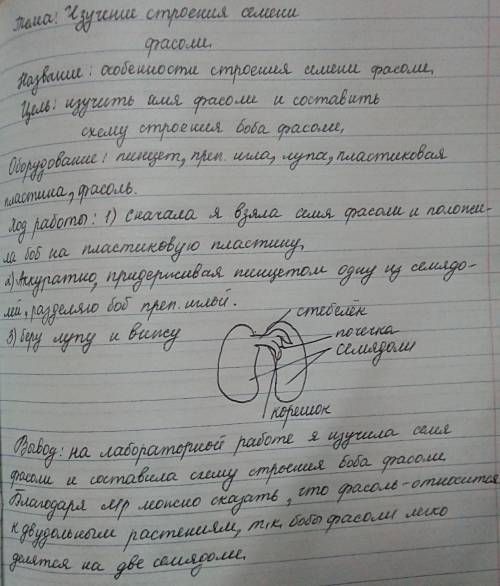 Тема: Изучение строения семени
фасоли.
Название: особенности строения семени фасоли.
Цель: изучить имя фасоли и составить
схему строения боба фасоли.
Оборудование: пинцет, преп. игла, лупа, пластиковая
пластина, фасоль.
Ход работы: 1) Сначала я взяла семя фасоли и положи-
ла боб на пластиковую пластину.
2) Аккуратно, придерживая пинцетом одну из семядо-
лей, разделяю боб преп. иглой.
3) Беру лупу и вижу
стебелёк
почечка
семядоли
корешок
Вывод: на лабораторной работе я изучила семя
фасоли и составила схему строения боба фасоли
Благодаря л/р можно сказать, что фасоль-относится
к двудольным растениям, т.к. бобы фасоли легко
делятся на две семядоли.